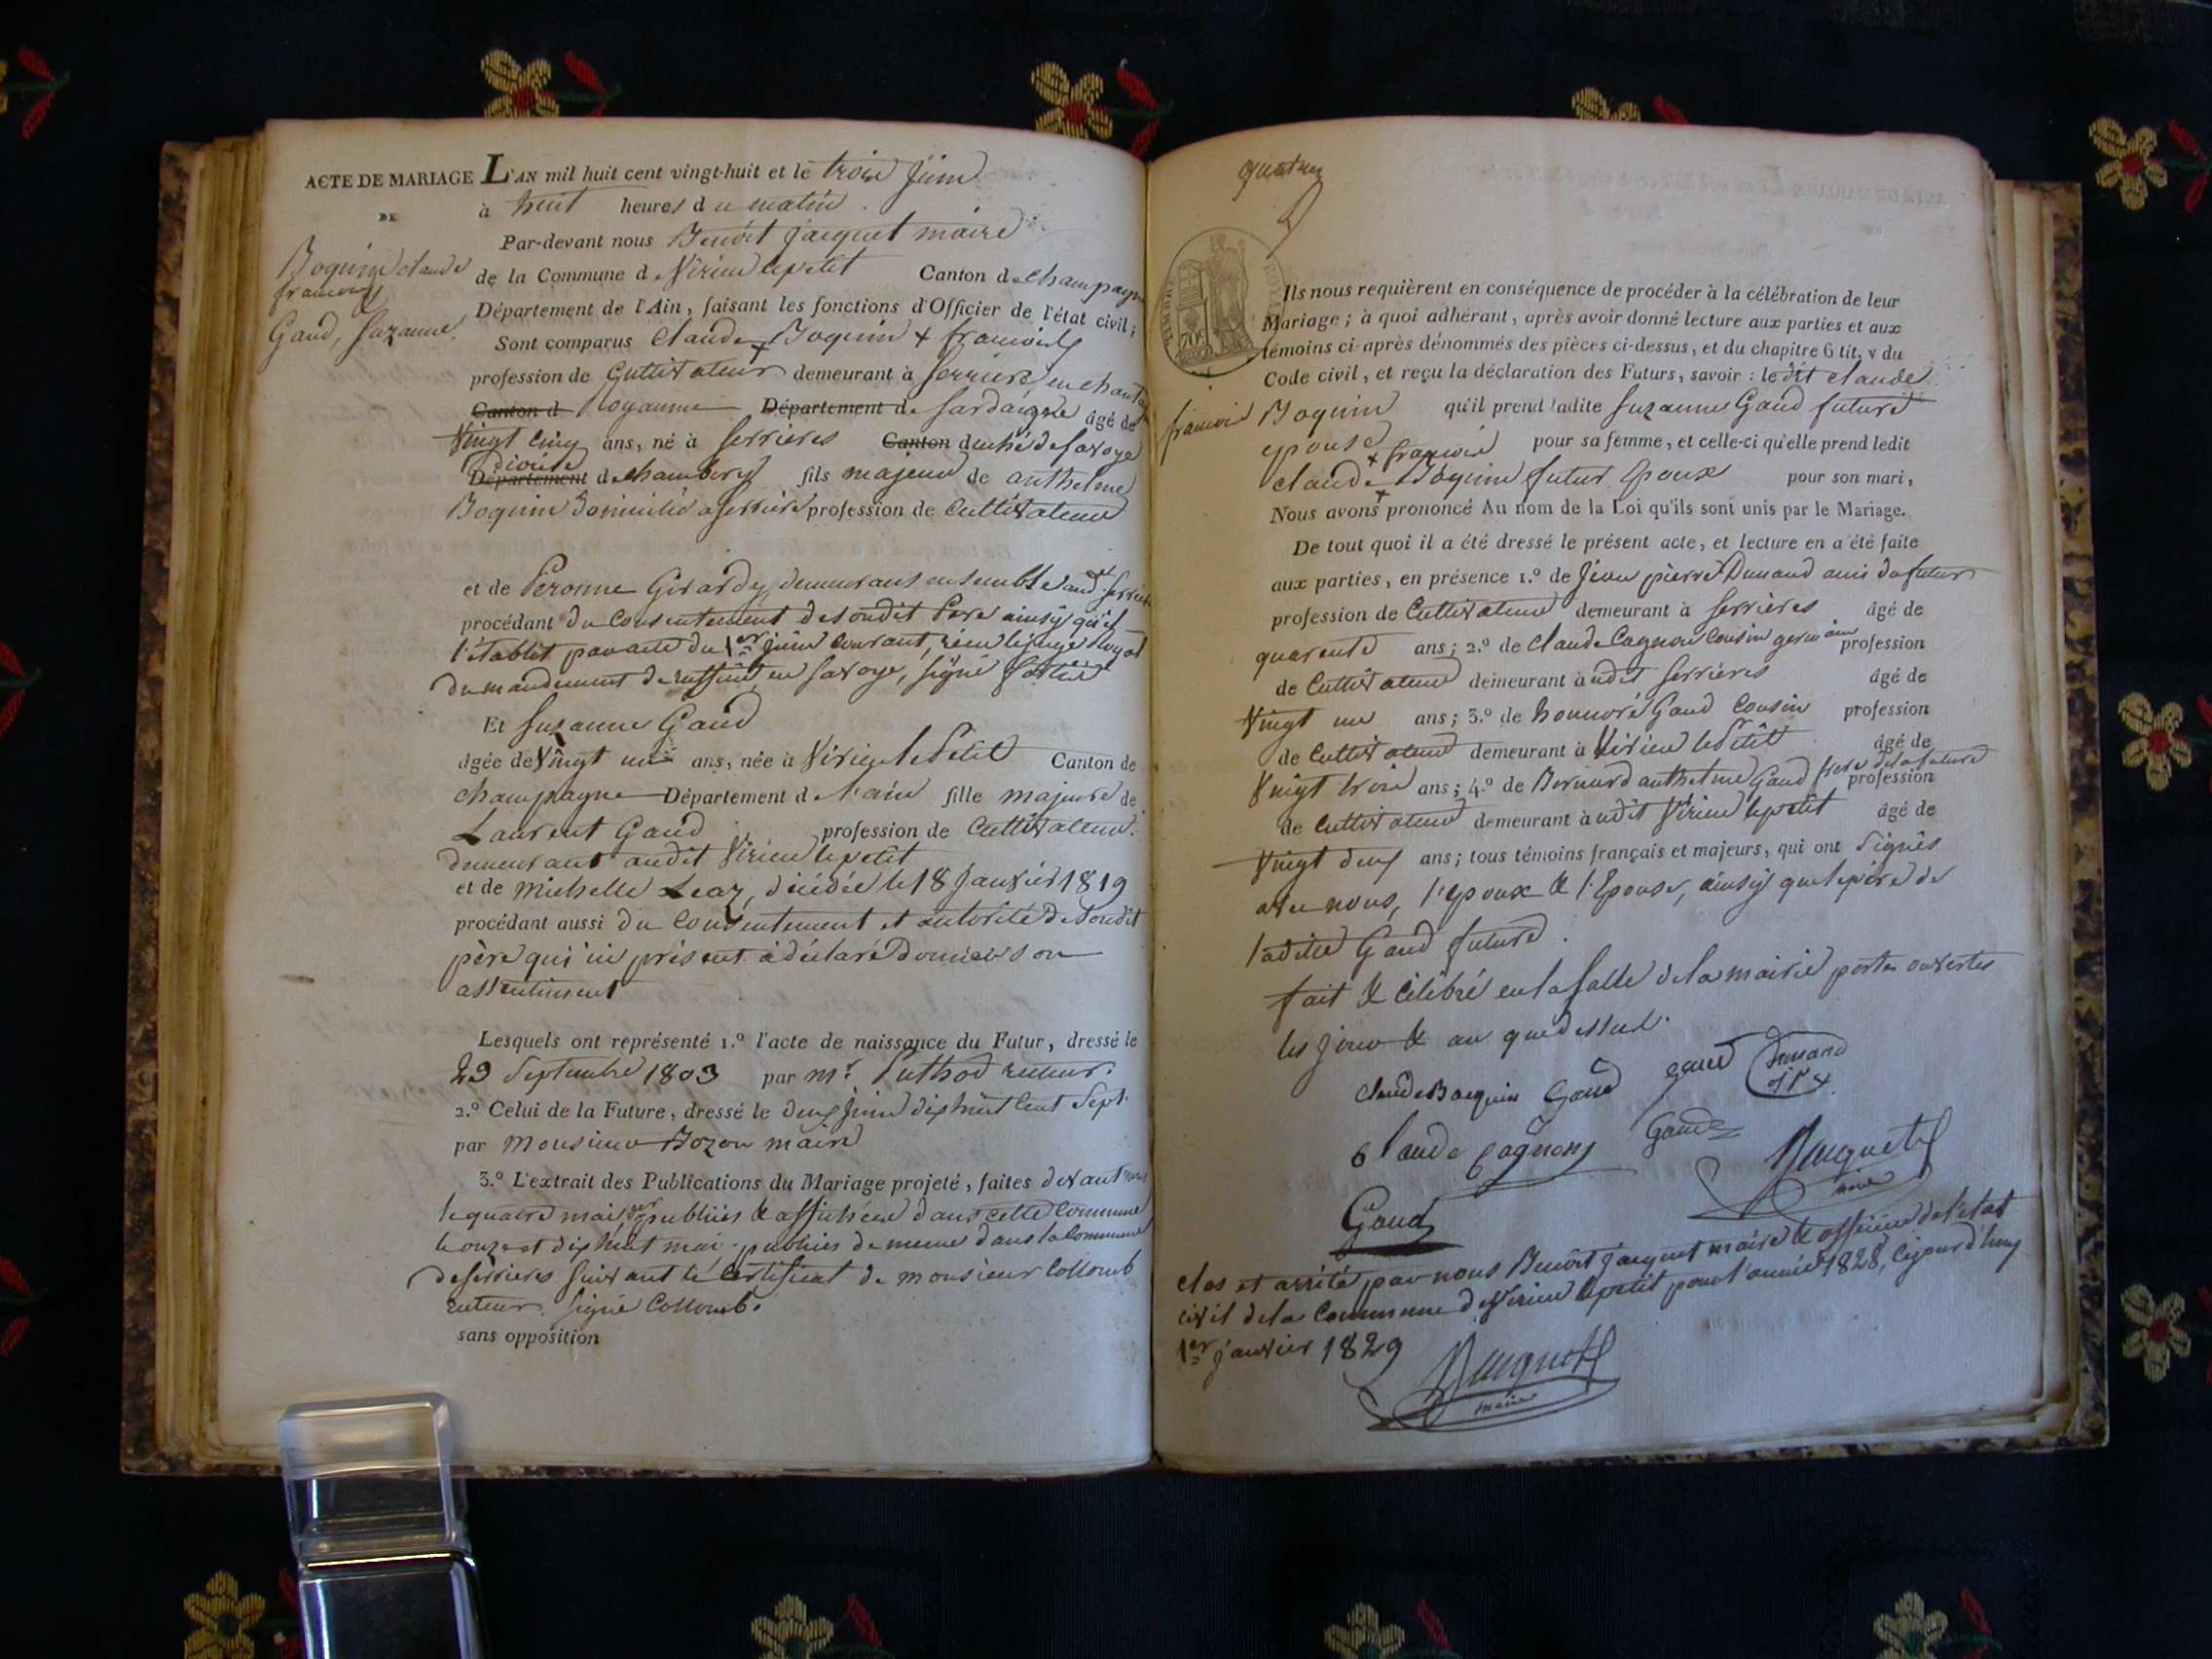 ACTE DE MARIAGE
DE
Boquin Claude
francois
Gaud, Suzanne.
L'AN mil huit cent vingt-huit et le trois Juin
à huit heures du matin.
Par-devant nous Benoit Jacquet maire
de la Commune de Virieu le petit Canton de champagne
Département de l'Ain, faisant les fonctions d'Officier de l'état civil;
Sont comparus Claude Boquin + francois
profession de Cultivateur demeurant à Serrieres en chautagne
Canton d Royaume Département de Sardaigne âgé de
Vingt cinq ans, né à Serrieres Canton duché de Savoye
Département de chambery fils majeur de anthelme
Boquin Domicilié a Serriere profession de Cultivateur
et de Peronne Girardy, demeurans ensemble audit Serriere
procédant du Consentement de sondit Pere ainsy qu'il
l'établit par acte du 1er juin courant,
du mandement de ruffieu en Savoye, signé
Et Suzanne Gaud
âgée de Vingt un ans, née à Virieu le Petit Canton de
champagne Département de l'ain fille majeure de
Laurent Gaud profession de Cultivateur.
demeurant audit Virieu le petit
et de michelle Leaz, décédée le 18 Janvier 1819
procédant aussi du Consentement et autorité de sondit
père qui ici présent a déclaré Donner son
assentiment
Lesquels ont représenté 1.º l'acte de naissance du Futur, dressé le
29 Septembre 1803 par mr. Puthod recteur.
2.º Celui de la Future, dressé le deux Juin dix huit Cent Sept.
par monsieur Bozon maire
3.º L'extrait des Publications du Mariage projeté, faites devant nous
le quatre mai der publiées & affichées dans cette Commune
le onze et dix huit mai publiées de meme dans la Commune
de Serrieres suivant le Certificat de monsieur Collomb
recteur, signé Collomb.
sans opposition
TIMBRE ROYAL
70c
Ils nous requièrent en conséquence de procéder à la célébration de leur
Mariage; à quoi adhérant, après avoir donné lecture aux parties et aux
témoins ci-après dénommés des pièces ci-dessus, et du chapitre 6 tit. v du
Code civil, et reçu la déclaration des Futurs, savoir : le dit claude
francois Boquin qu'il prend ladite Suzanne Gaud future
epouse pour sa femme, et celle-ci qu'elle prend ledit
+ francois
claude Boquin futur Epoux pour son mari,
Nous avons prononcé Au nom de la Loi qu'ils sont unis par le Mariage.
De tout quoi il a été dressé le présent acte, et lecture en a été faite
aux parties, en présence 1.º de Jean pierre Dunand ami du futur
profession de Cultivateur demeurant à Serrieres âgé de
quarente ans; 2.º de claude Cagnon Cousin germain profession
de Cultivateur demeurant à udit Serrieres âgé de
Vingt un ans; 3.º de honnoré Gaud Cousin profession
de Cultivateur demeurant à Virieu le Petit âgé de
Vingt trois ans; 4.º de Bernard anthelme Gaud frere de la future profession
de Cultivateur demeurant à udit Virieu le petit âgé de
Vingt deux ans; tous témoins français et majeurs, qui ont Signés
avec nous, l'époux & l'Epouse, ainsy que le père de
ladite Gaud future.
fait & Célébré en la Salle de la mairie portes ouvertes
les jour & an que dessus.
Claude Boquin Gaud Gaud Dunand
Claude Cagnon Gaud Jacquet
maire
Gaud
Clos et arrêté par nous Benoit Jacquet maire & officier de l'état
civil de la Commune de Virieu le petit pour l'année 1828, Cejourd'huy
1er janvier 1829
Jacquet
maire